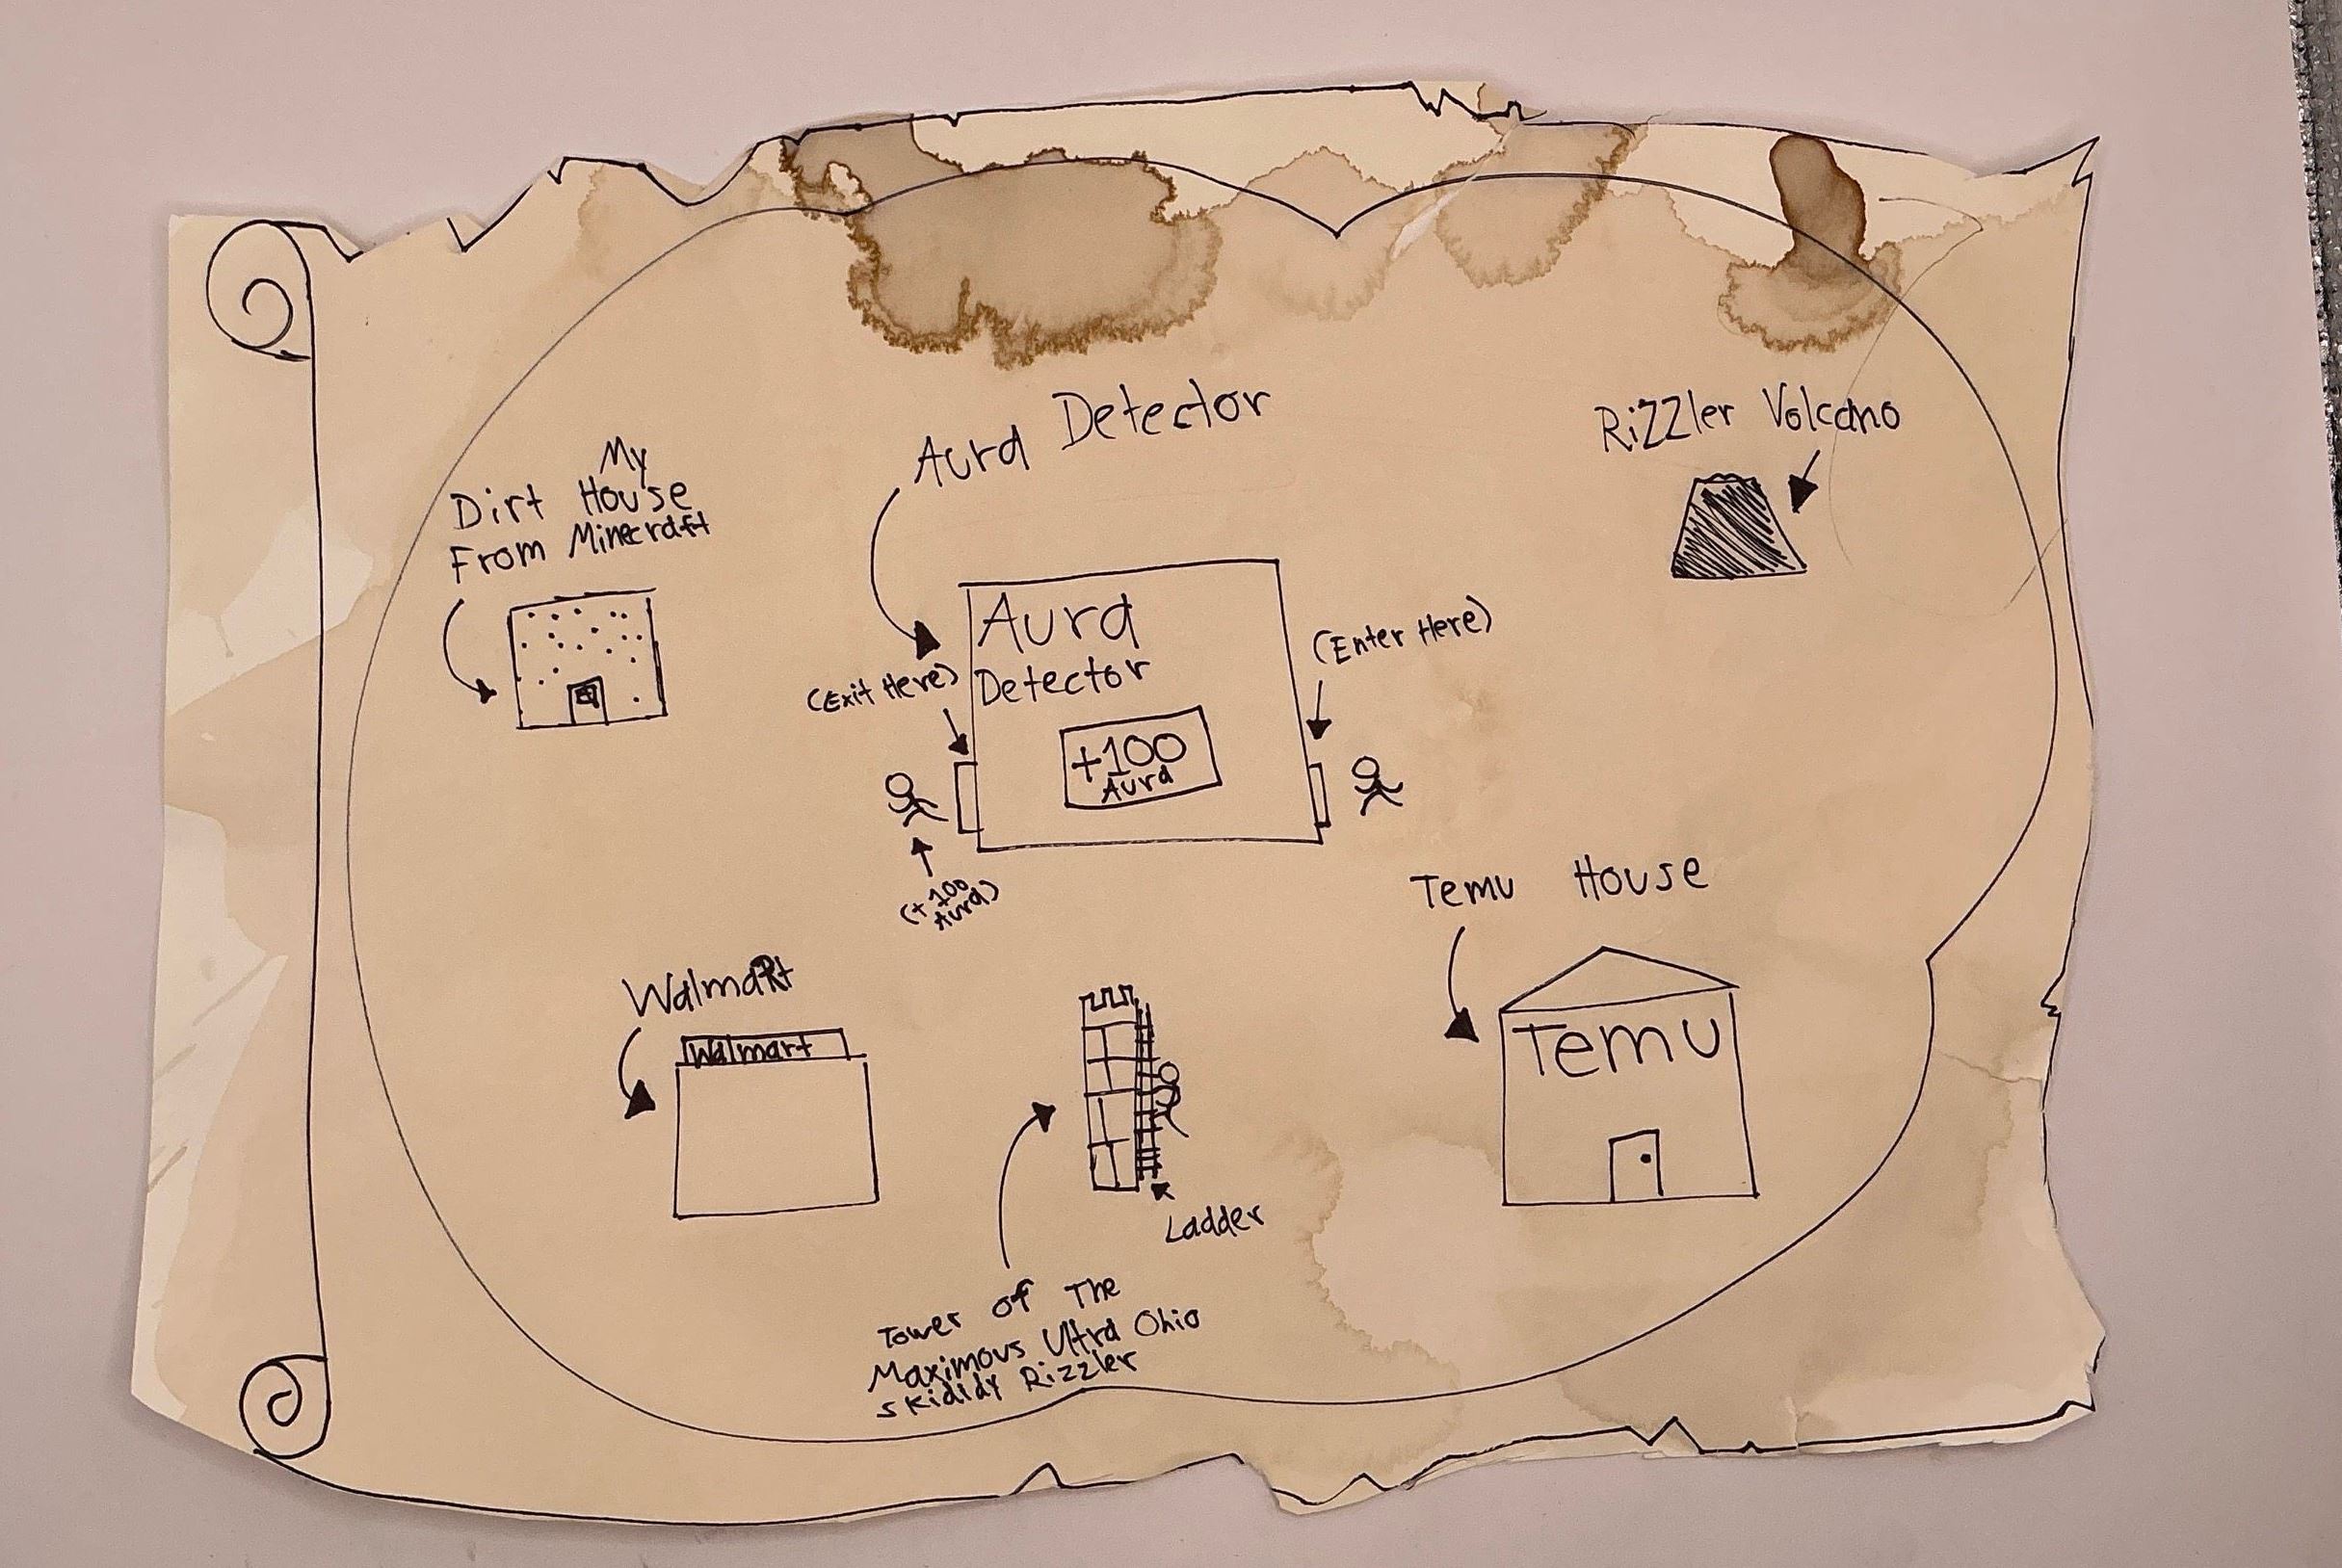 Aura Detector
Rizzler Volcano
My
Dirt House
From Minecraft
Aura
Detector
(Enter Here)
(Exit Here)
+100
Aura
(+100
Aura)
Temu House
Temu
Walmart
Walmart
Ladder
Tower of The
Maximous Ultra Ohio
Skididy Rizzler